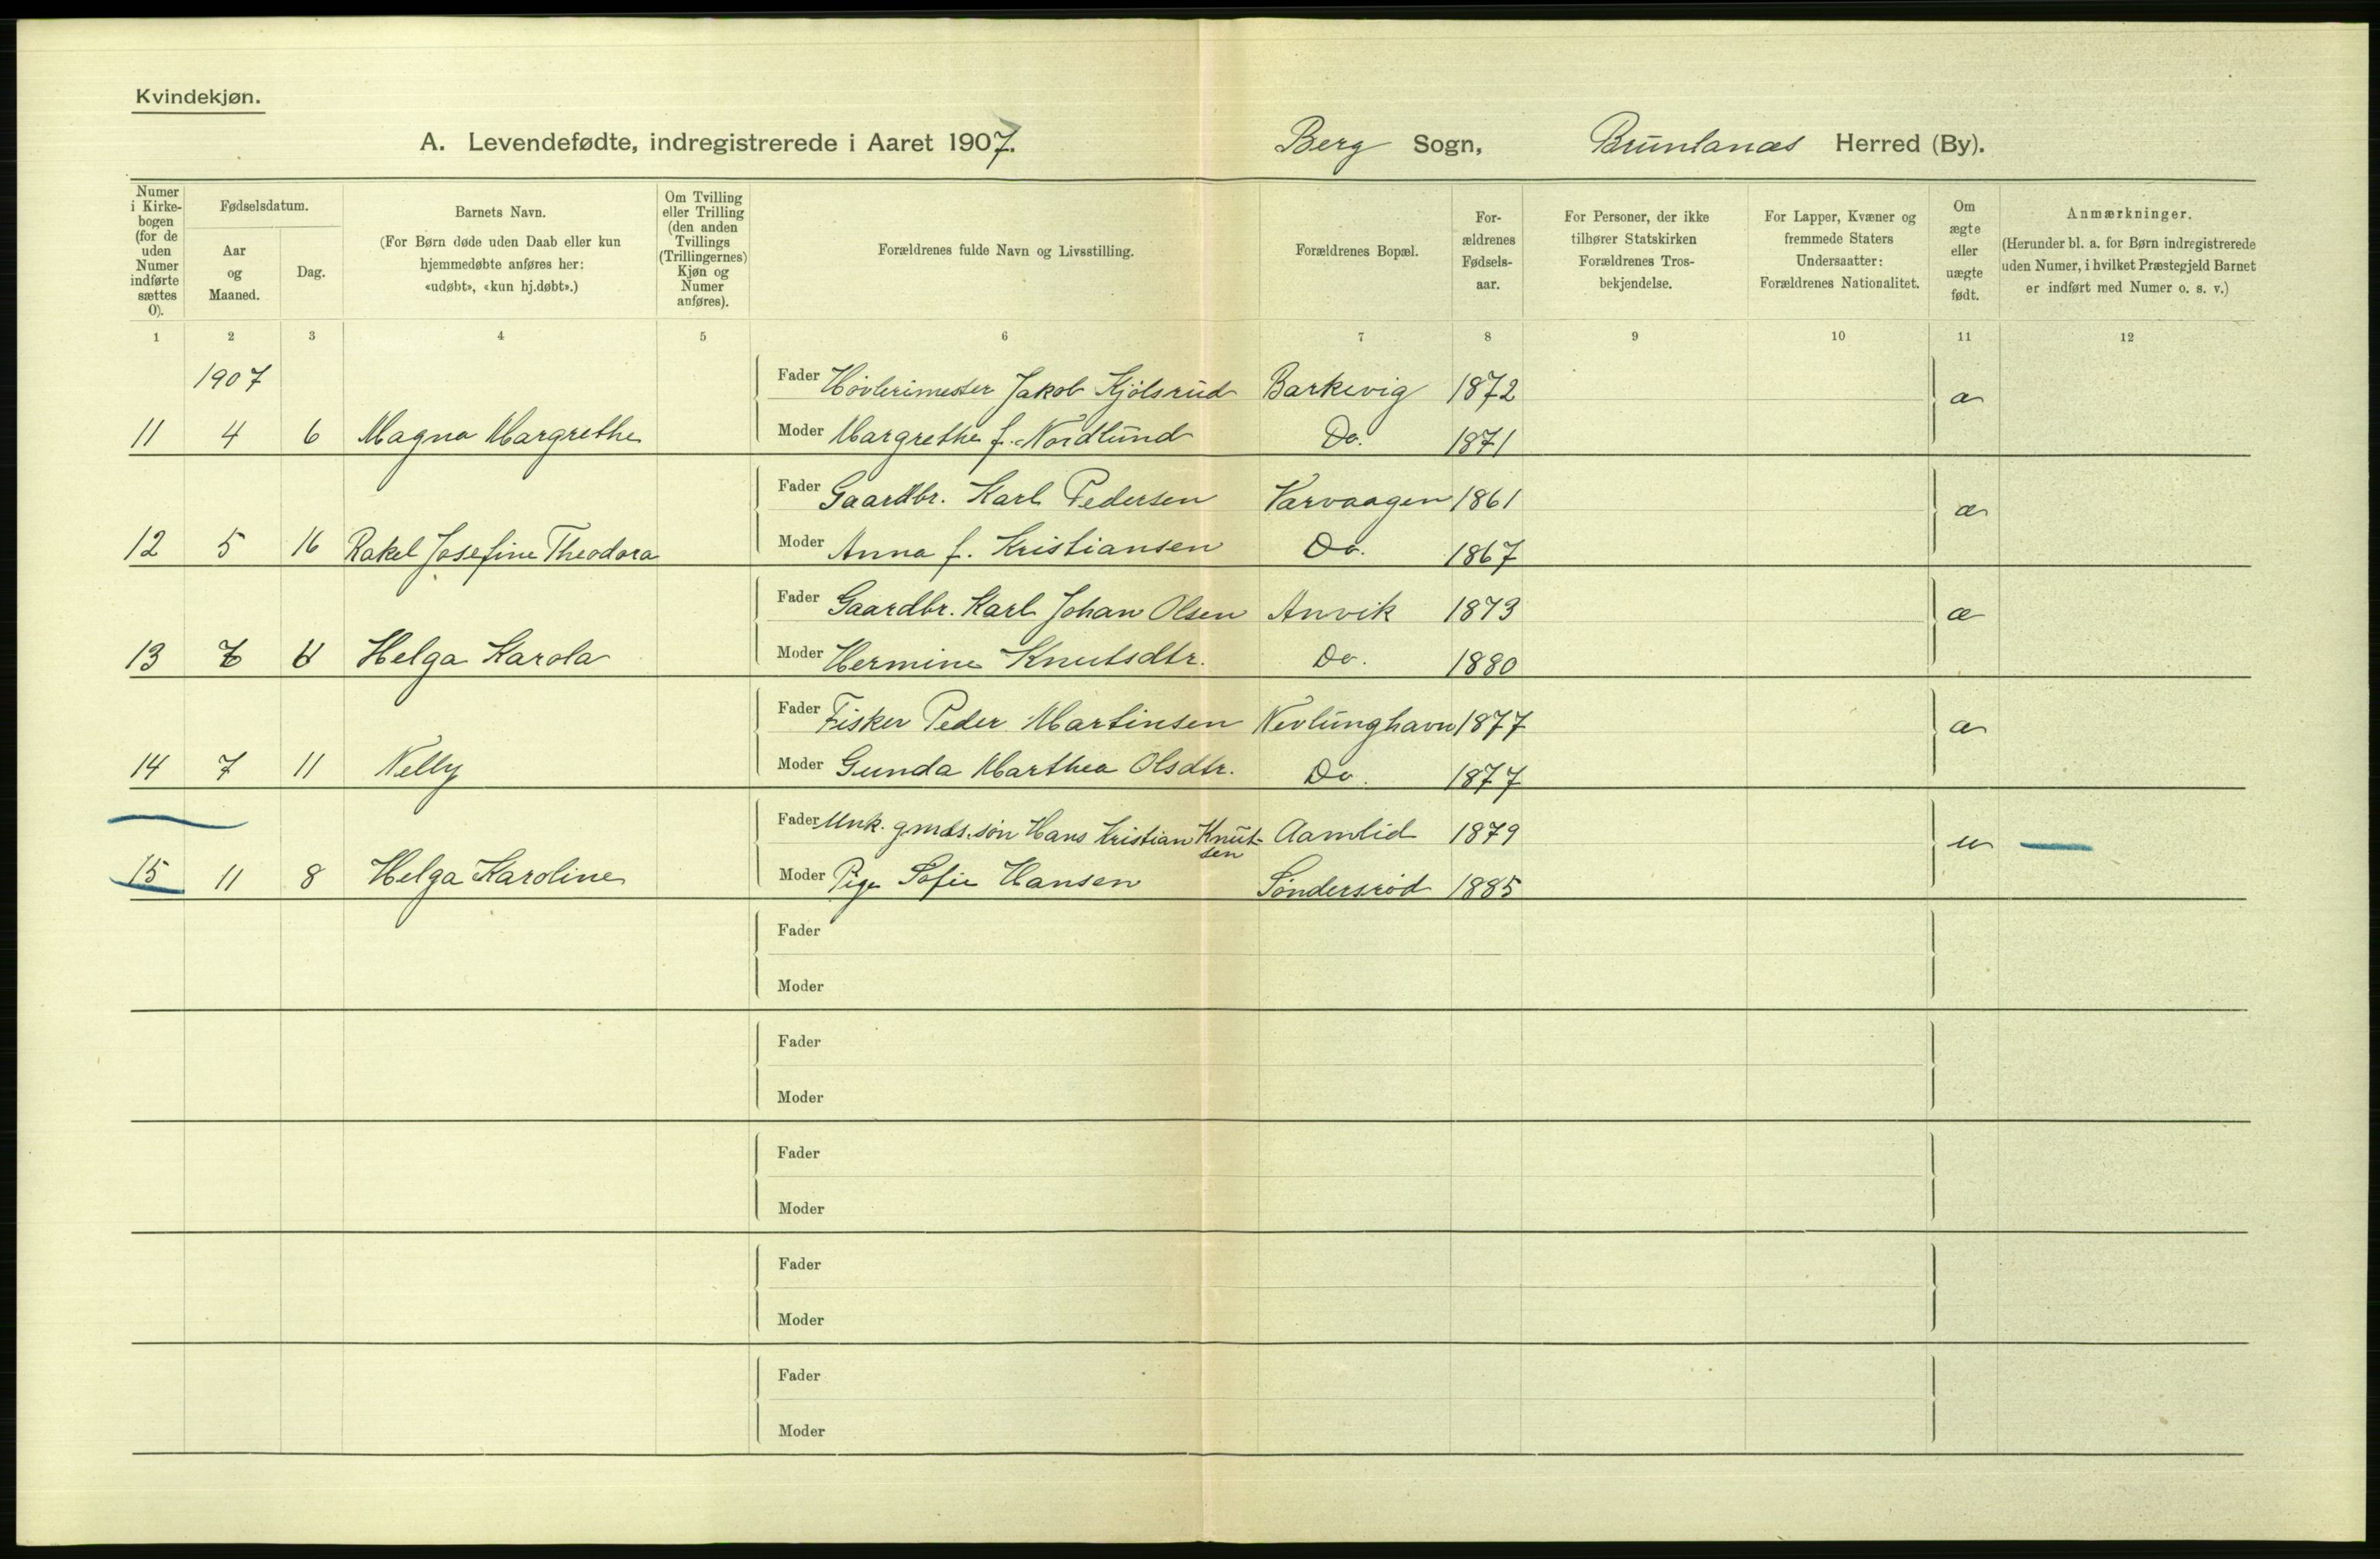 Kvindekjøn.
A. Levendefødte, indregistrerede i Aaret 1907. Berg Sogn, Brunlanæs Herred (By).
Numer i Kirkebogen (for de uden Numer indførte sættes 0).
Fødselsdatum.
Aar og Maaned.
Dag.
Barnets Navn.
(For Børn døde uden Daab eller kun hjemmedøbte anføres her: «udøbt», «kun hj.døbt».)
Om Tvilling eller Trilling (den anden Tvillings (Trillingernes) Kjøn og Numer anføres).
Forældrenes fulde Navn og Livsstilling.
Forældrenes Bopæl.
Forældrenes Fødselsaar.
For Personer, der ikke tilhører Statskirken Forældrenes Trosbekjendelse.
For Lapper, Kvæner og fremmede Staters Undersaatter: Forældrenes Nationalitet.
Om ægte eller uægte født.
Anmærkninger.
(Herunder bl. a. for Børn indregistrerede uden Numer, i hvilket Præstegjeld Barnet er indført med Numer o. s. v.)
1 2 3 4 5 6 7 8 9 10 11 12
1907 Fader Høvlerimester Jakob Kjølsrud Barkevig 1872 æ
11 4 6 Magna Margrethe Moder Margrethe f. Nordlund Do. 1871
Fader Gaardbr. Karl Pedersen Varvaagen 1861 æ
12 5 16 Rakel Josefine Theodora Moder Anna f. Kristiansen Do. 1867
Fader Gaardbr. Karl Johan Olsen Anvik 1873 æ
13 Helga Karola Moder Hermine Knutsdtr. Do. 1880
Fader Fisker Peder Martinsen Nevlunghavn 1877 æ
14 7 11 Nelly Moder Gunda Marthea Olsdtr. Do. 1877
Fader Unk. gmds. søn Hans Kristian Knutsen Aamlid 1879 u
15 11 8 Helga Karoline Moder Pige Sofie Hansen Søndersrød 1885
Fader
Moder
Fader
Moder
Fader
Moder
Fader
Moder
Fader
Moder